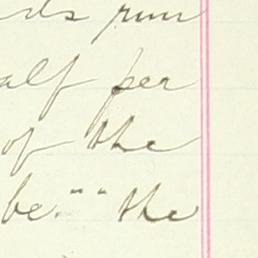 ds run
alf per
of the
be." " the